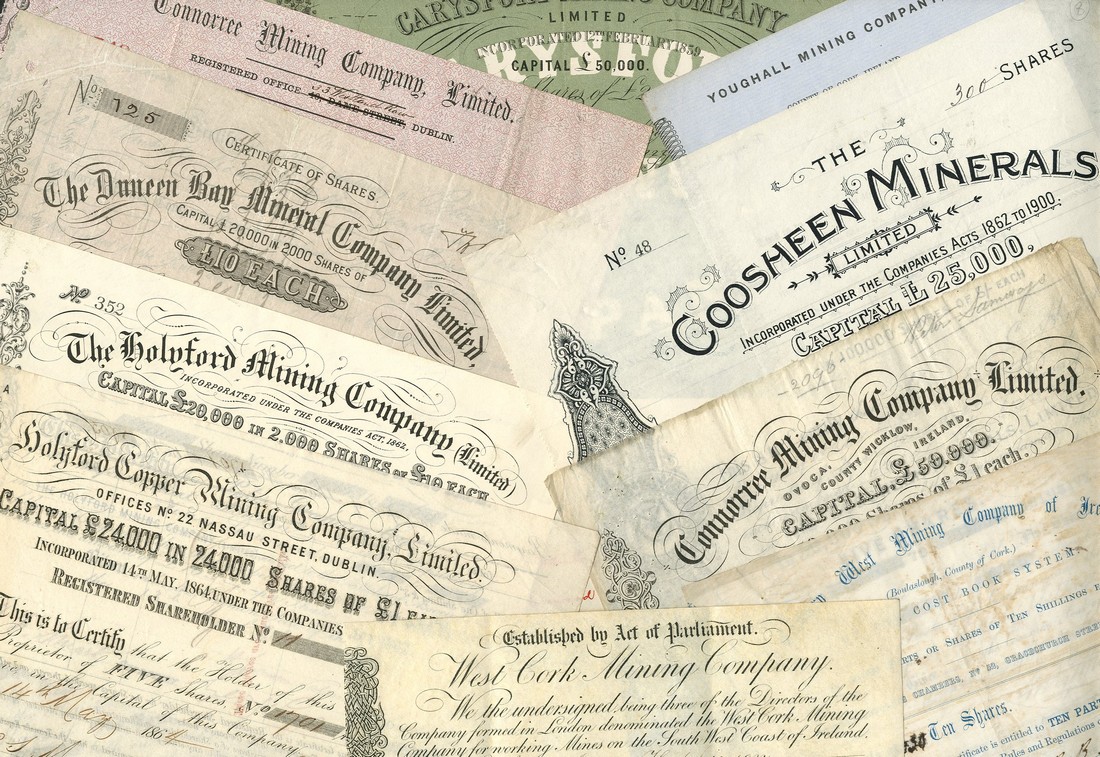 CARYSFORT MINING COMPANY
LIMITED
INCORPORATED 1ST FEBRUARY 1859
CAPITAL £50,000.
Shares of £2
YOUGHALL MINING COMPANY
Connorree Mining Company, Limited.
REGISTERED OFFICE, 40, DAME STREET, DUBLIN.
No. 125
CERTIFICATE OF SHARES
The Duneen Bay Mineral Company Limited,
CAPITAL £20,000 IN 2000 SHARES OF
£10 EACH
300 SHARES
THE
No 48
COOSHEEN MINERALS
LIMITED
INCORPORATED UNDER THE COMPANIES ACTS 1862 TO 1900.
CAPITAL £25,000,
No 352
The Holyford Mining Company (Limited)
INCORPORATED UNDER THE COMPANIES ACT, 1862,
CAPITAL £20,000 IN 2,000 SHARES OF £10 EACH
2096
Connorree Mining Company Limited.
OVOCA,
COUNTY WICKLOW, IRELAND,
CAPITAL, £50,000.
Shares of £1 each.
Holyford Copper Mining Company, Limited.
OFFICES No 22 NASSAU STREET, DUBLIN.
CAPITAL £24,000 IN 24,000 SHARES OF £1 E
INCORPORATED 14TH MAY. 1864 UNDER THE COMPANIES
REGISTERED SHAREHOLDER No 11
This is to Certify that the Holder of this
Proprietor of FIVE Shares, No
in the Capital of this Company
May 186
West Mining Company of Ire
(Boulaslough, County of Cork.)
COST BOOK SYSTEM.
OR SHARES OF TEN SHILLINGS E
CHAMBERS, No 52, GRACECHURCH STRE
Ten Shares.
ertificate is entitled to TEN PAR
Rules and Regulations o
Established by Act of Parliament.
West Cork Mining Company.
We the undersigned, being three of the Directors of the
Company formed in London denominated the West Cork Mining
Company for working Mines on the South West Coast of Ireland.